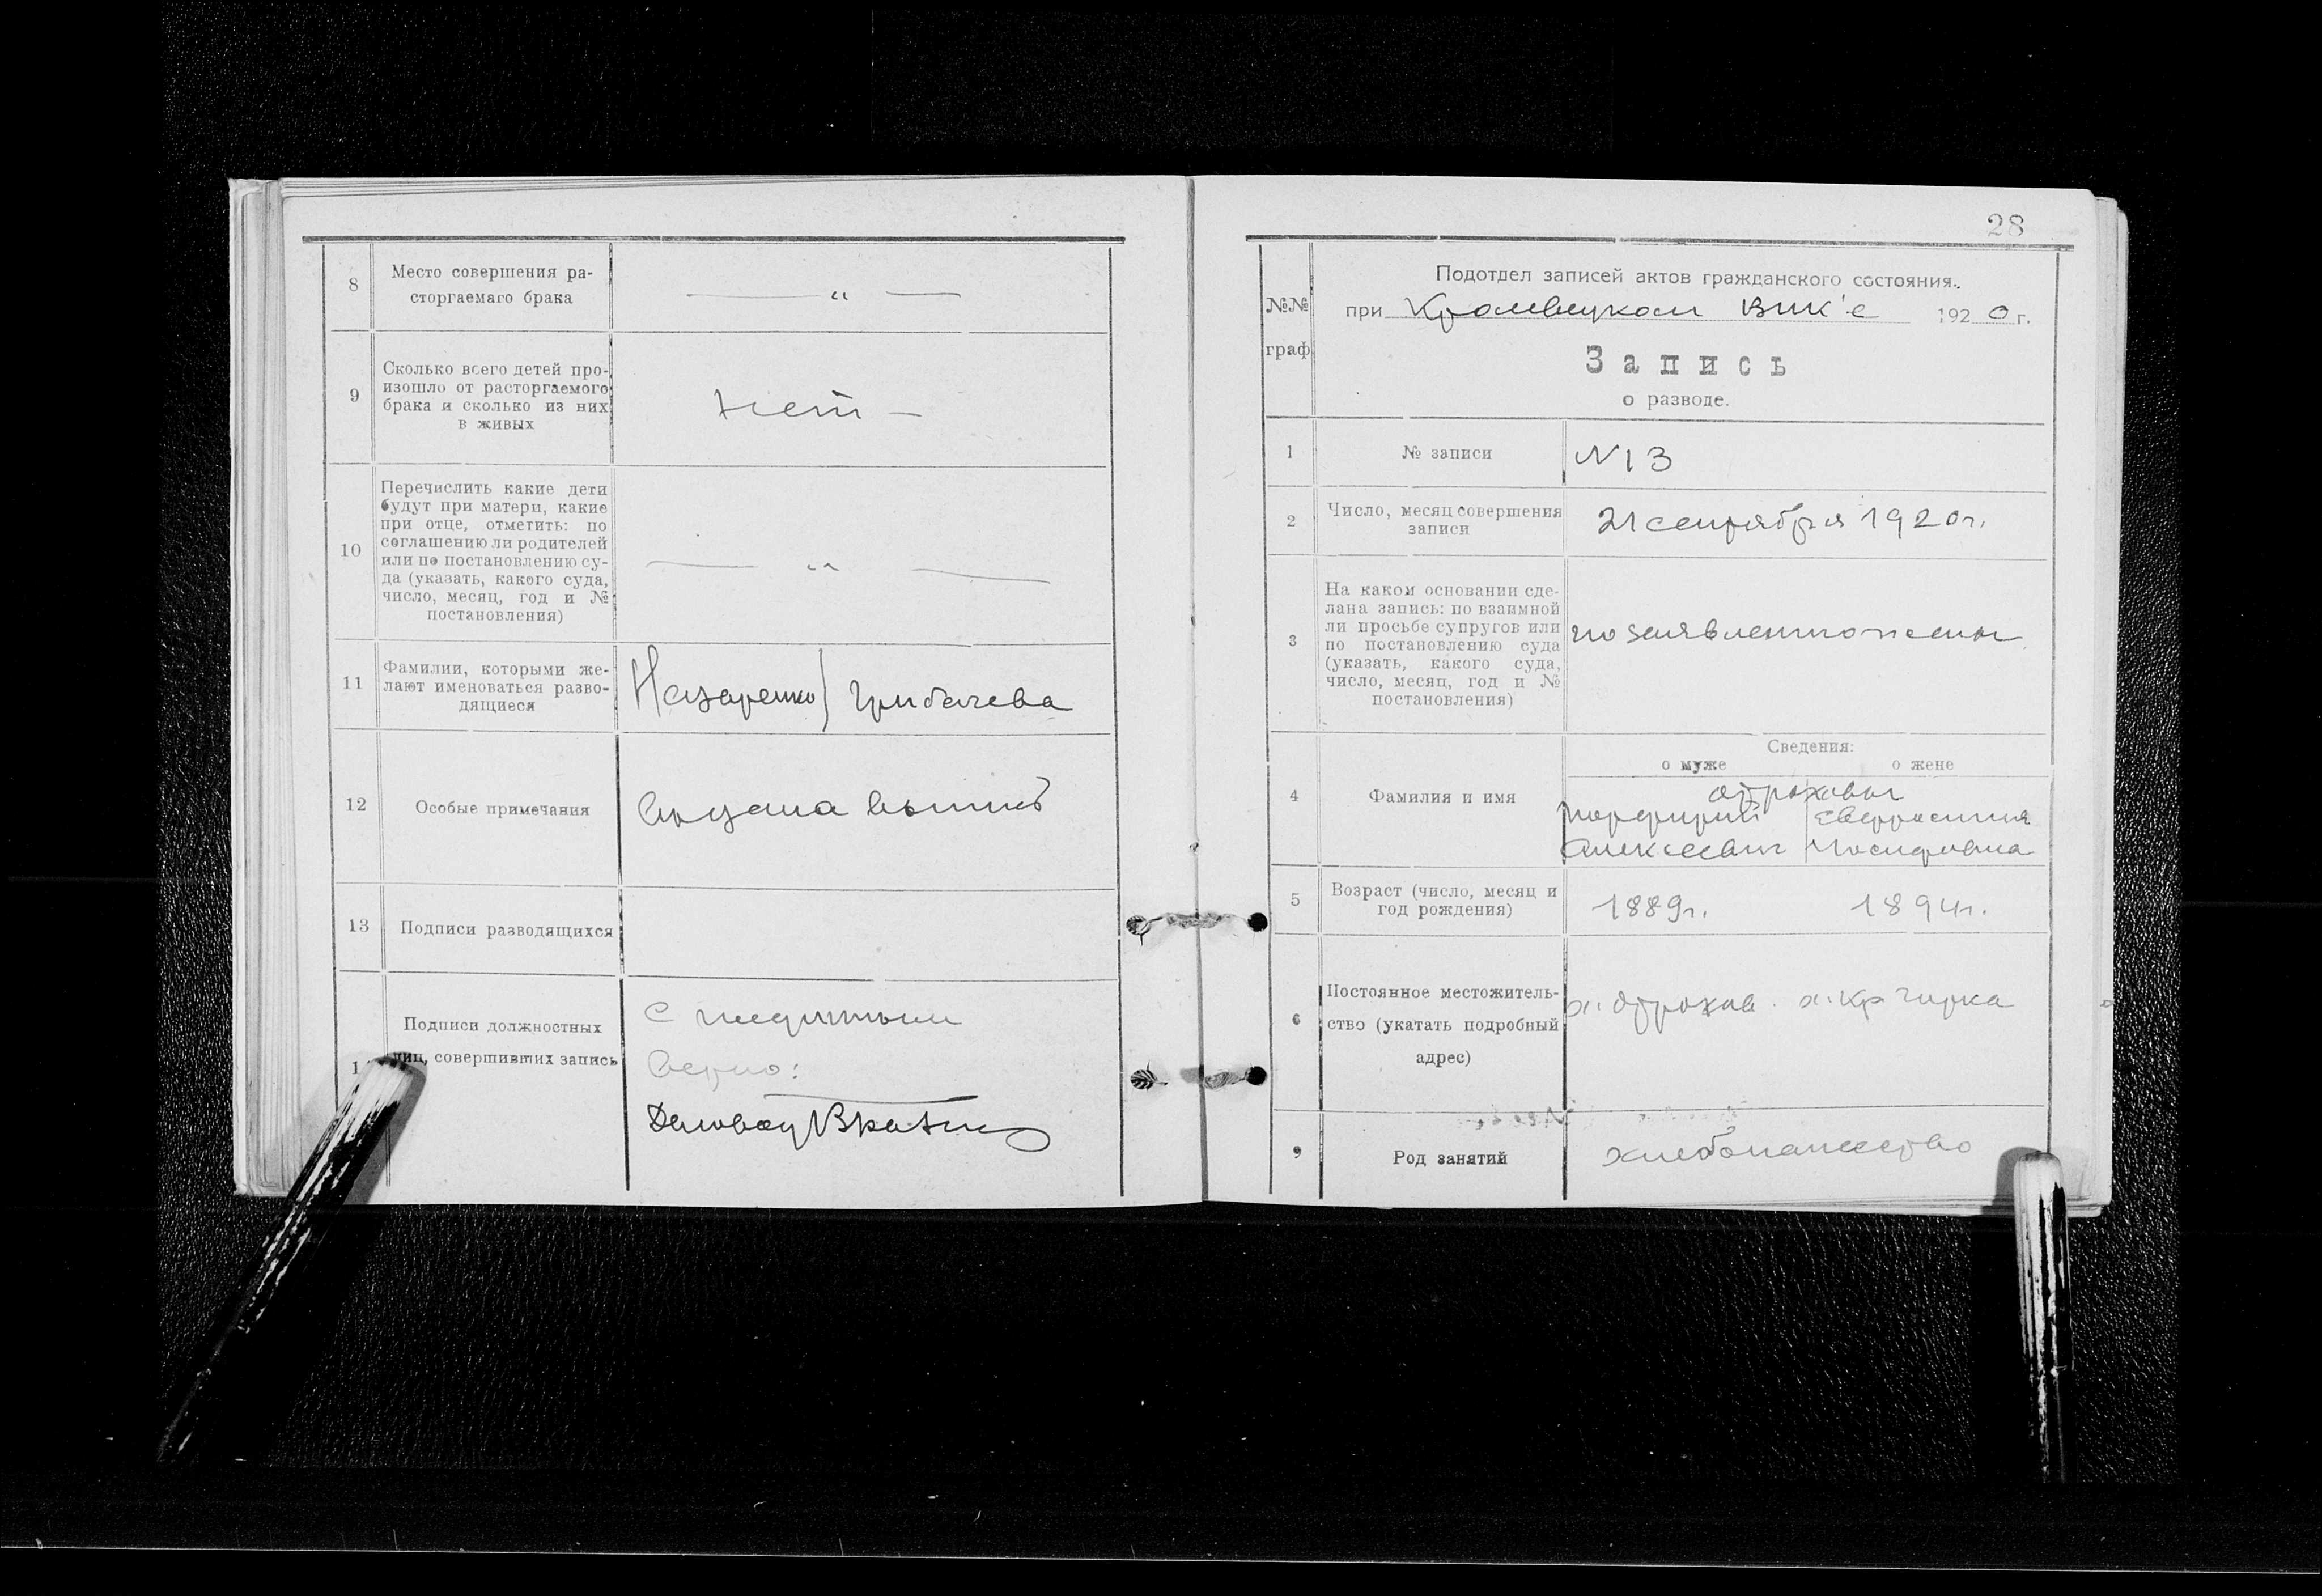 8
Место совершения ра-
сторгаемаго брака
— „ —
9
Сколько всего детей про-
изошло от расторгаемого
брака и сколько из них
в живых
нет —
10
Перечислить какие дети
будут при матери, какие
при отце, отметить: по
соглашению ли родителей
или по постановлению су-
да (указать, какого суда,
число, месяц, год и №
постановления)
— „ —
11
Фамилии, которыми же-
лают именоваться разво-
дящиеся
Назаренко / Грибачева
12
Особые примечания
выдана выпись
13
Подписи разводящихся
Подписи должностных
лиц, совершивших запись
С подлинным
Верно:
28
№№
граф
Подотдел записей актов гражданского состояния.
при Кролевецком Вик'е 1920 г.
Запись
о разводе.
1
№ записи
N 13
2
Число, месяц совершения
записи
21 сентября 1920 г.
3
На каком основании сде-
лана запись: по взаимной
ли просьбе супругов или
по постановлению суда
(указать, какого суда,
число, месяц, год и №
постановления)
по заявлению жены
4
Фамилия и имя
Сведения:
о муже о жене
Отроховы
Порфирий Евфросиния
Алексеевич Иосифовна
5
Возраст (число, месяц и
год рождения)
1889 г. 1894 г.
6
Постоянное местожитель-
ство (укатать подробный
адрес)
х. Отрохов. х. Кр. Горка
9
Род занятий
хлебопашество